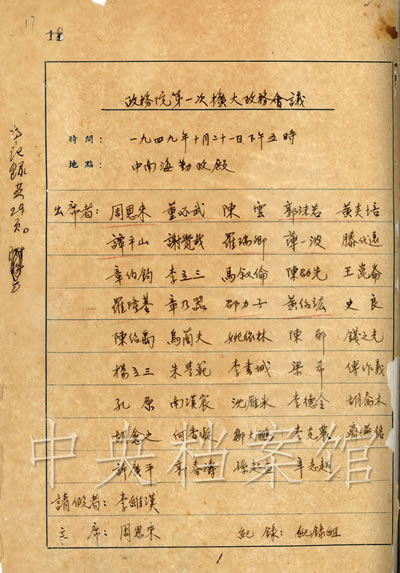 17
18
政務院第一次擴大政務會議
時間：一九四九年十月二十一日下午五時
地點：中南海勤政殿
出席者：周恩来 董必武 陳雲 郭沫若 黃炎培
譚平山 謝覺哉 羅瑞卿 薄一波 滕代遠
章伯鈞 李立三 馬叙倫 陳劭先 王崑崙
羅隆基 章乃器 邵力子 黃紹竑 史良
烏蘭夫 姚依林 陳郁 錢之光
楊立三 朱學範 李書城 梁希 傅作義
孔原 南漢宸 沈雁冰 李德全 胡喬木
胡愈之 何香凝 鄒大鵬 李克農 齊燕銘
許廣平 郭春濤 孫起孟 辛志超
請假者：李維漢
主席：周恩来 紀錄：紀錄組
1
共29頁。
中央档案馆